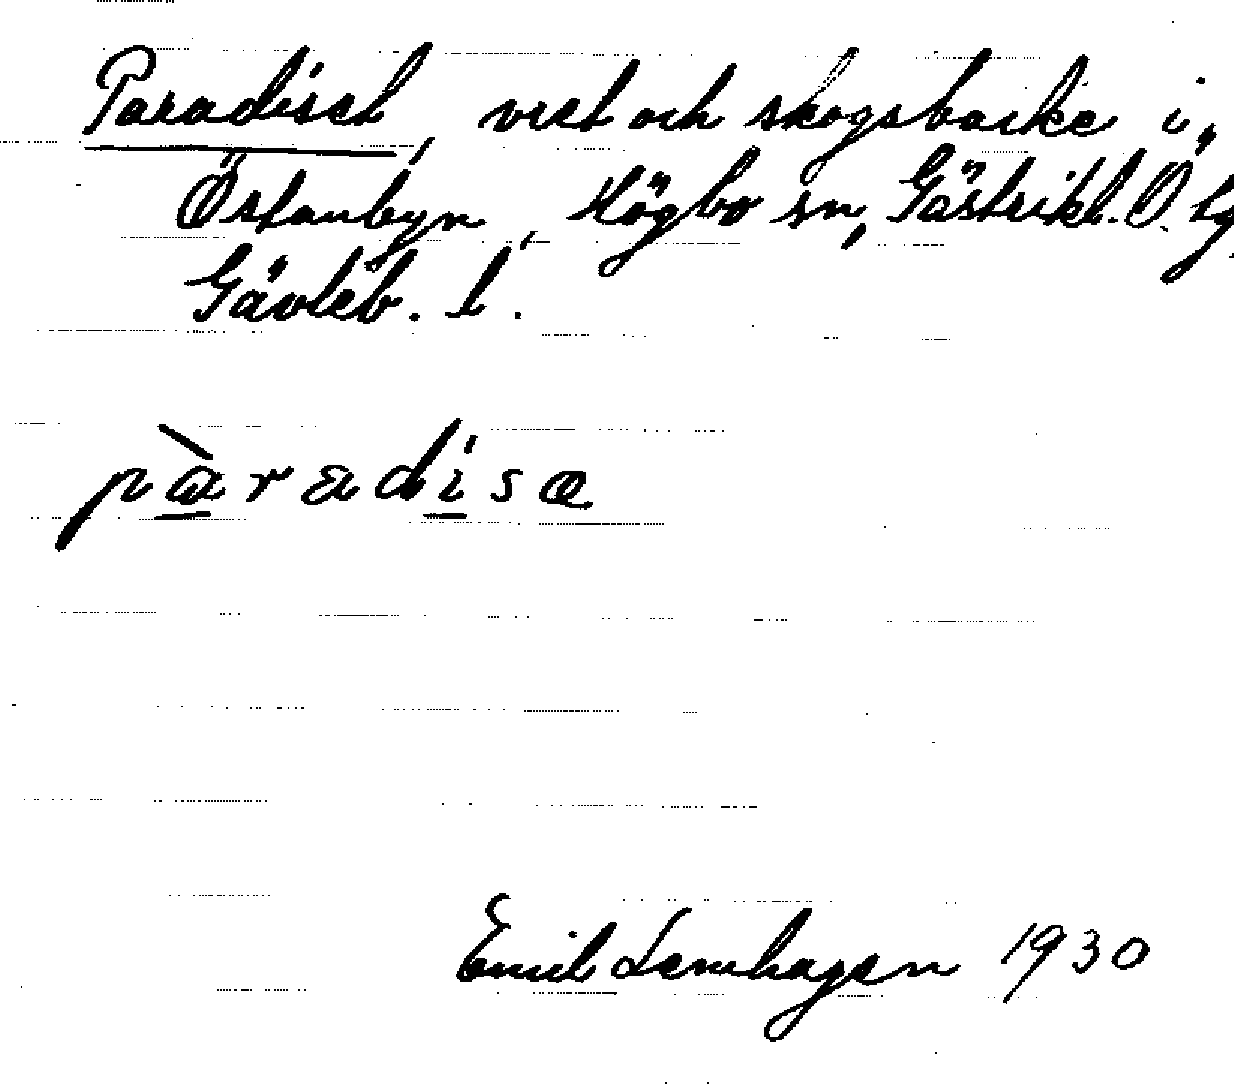 Paradiset, vret och skogsbacke i
Östanbyn, Högbo sn, Gästrikl. Ö. tg,
Gävleb. l.
pàradisæ
Emil Lemhagen 1930